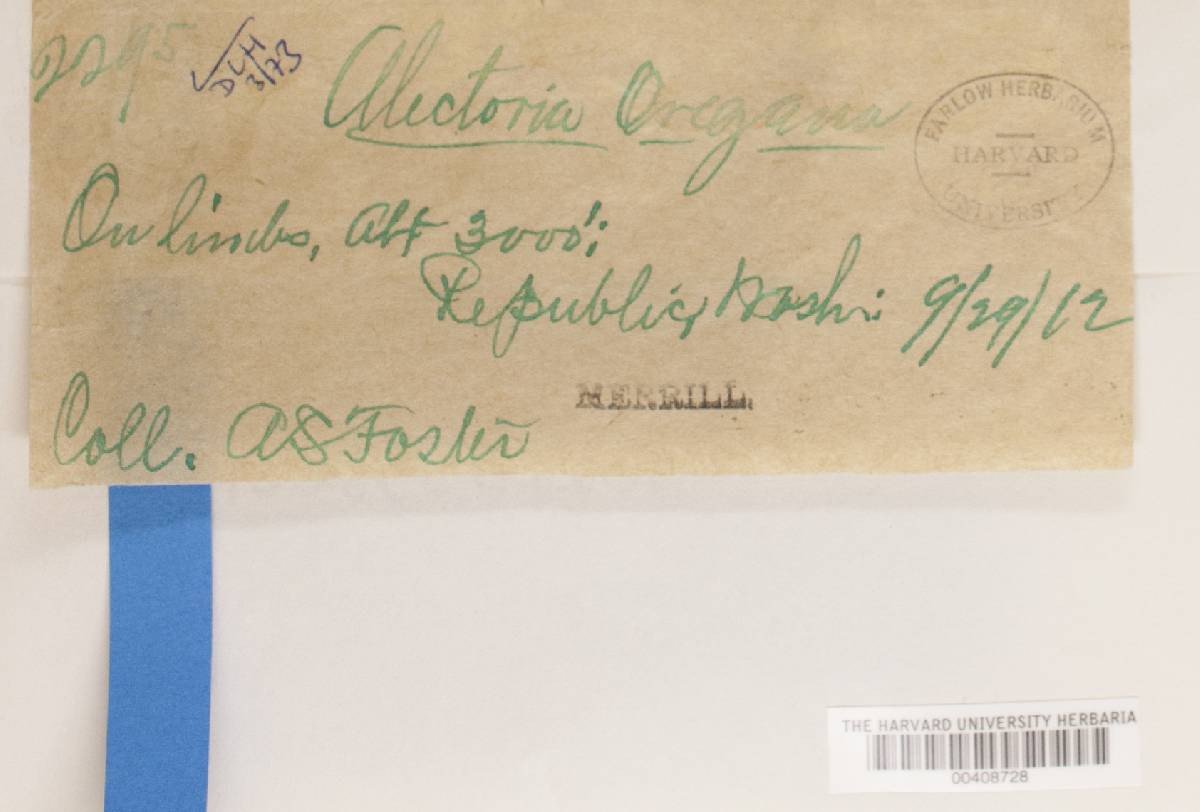 2295
DLH
3/73
Alectoria Oregana
FARLOW HERBARIUM
HARVARD
UNIVERSITY
On limbs, Alt 3000':
Republic, Wash: 9/29/12
MERRILL.
Coll. AS Foster
THE HARVARD UNIVERSITY HERBARIA
00408728